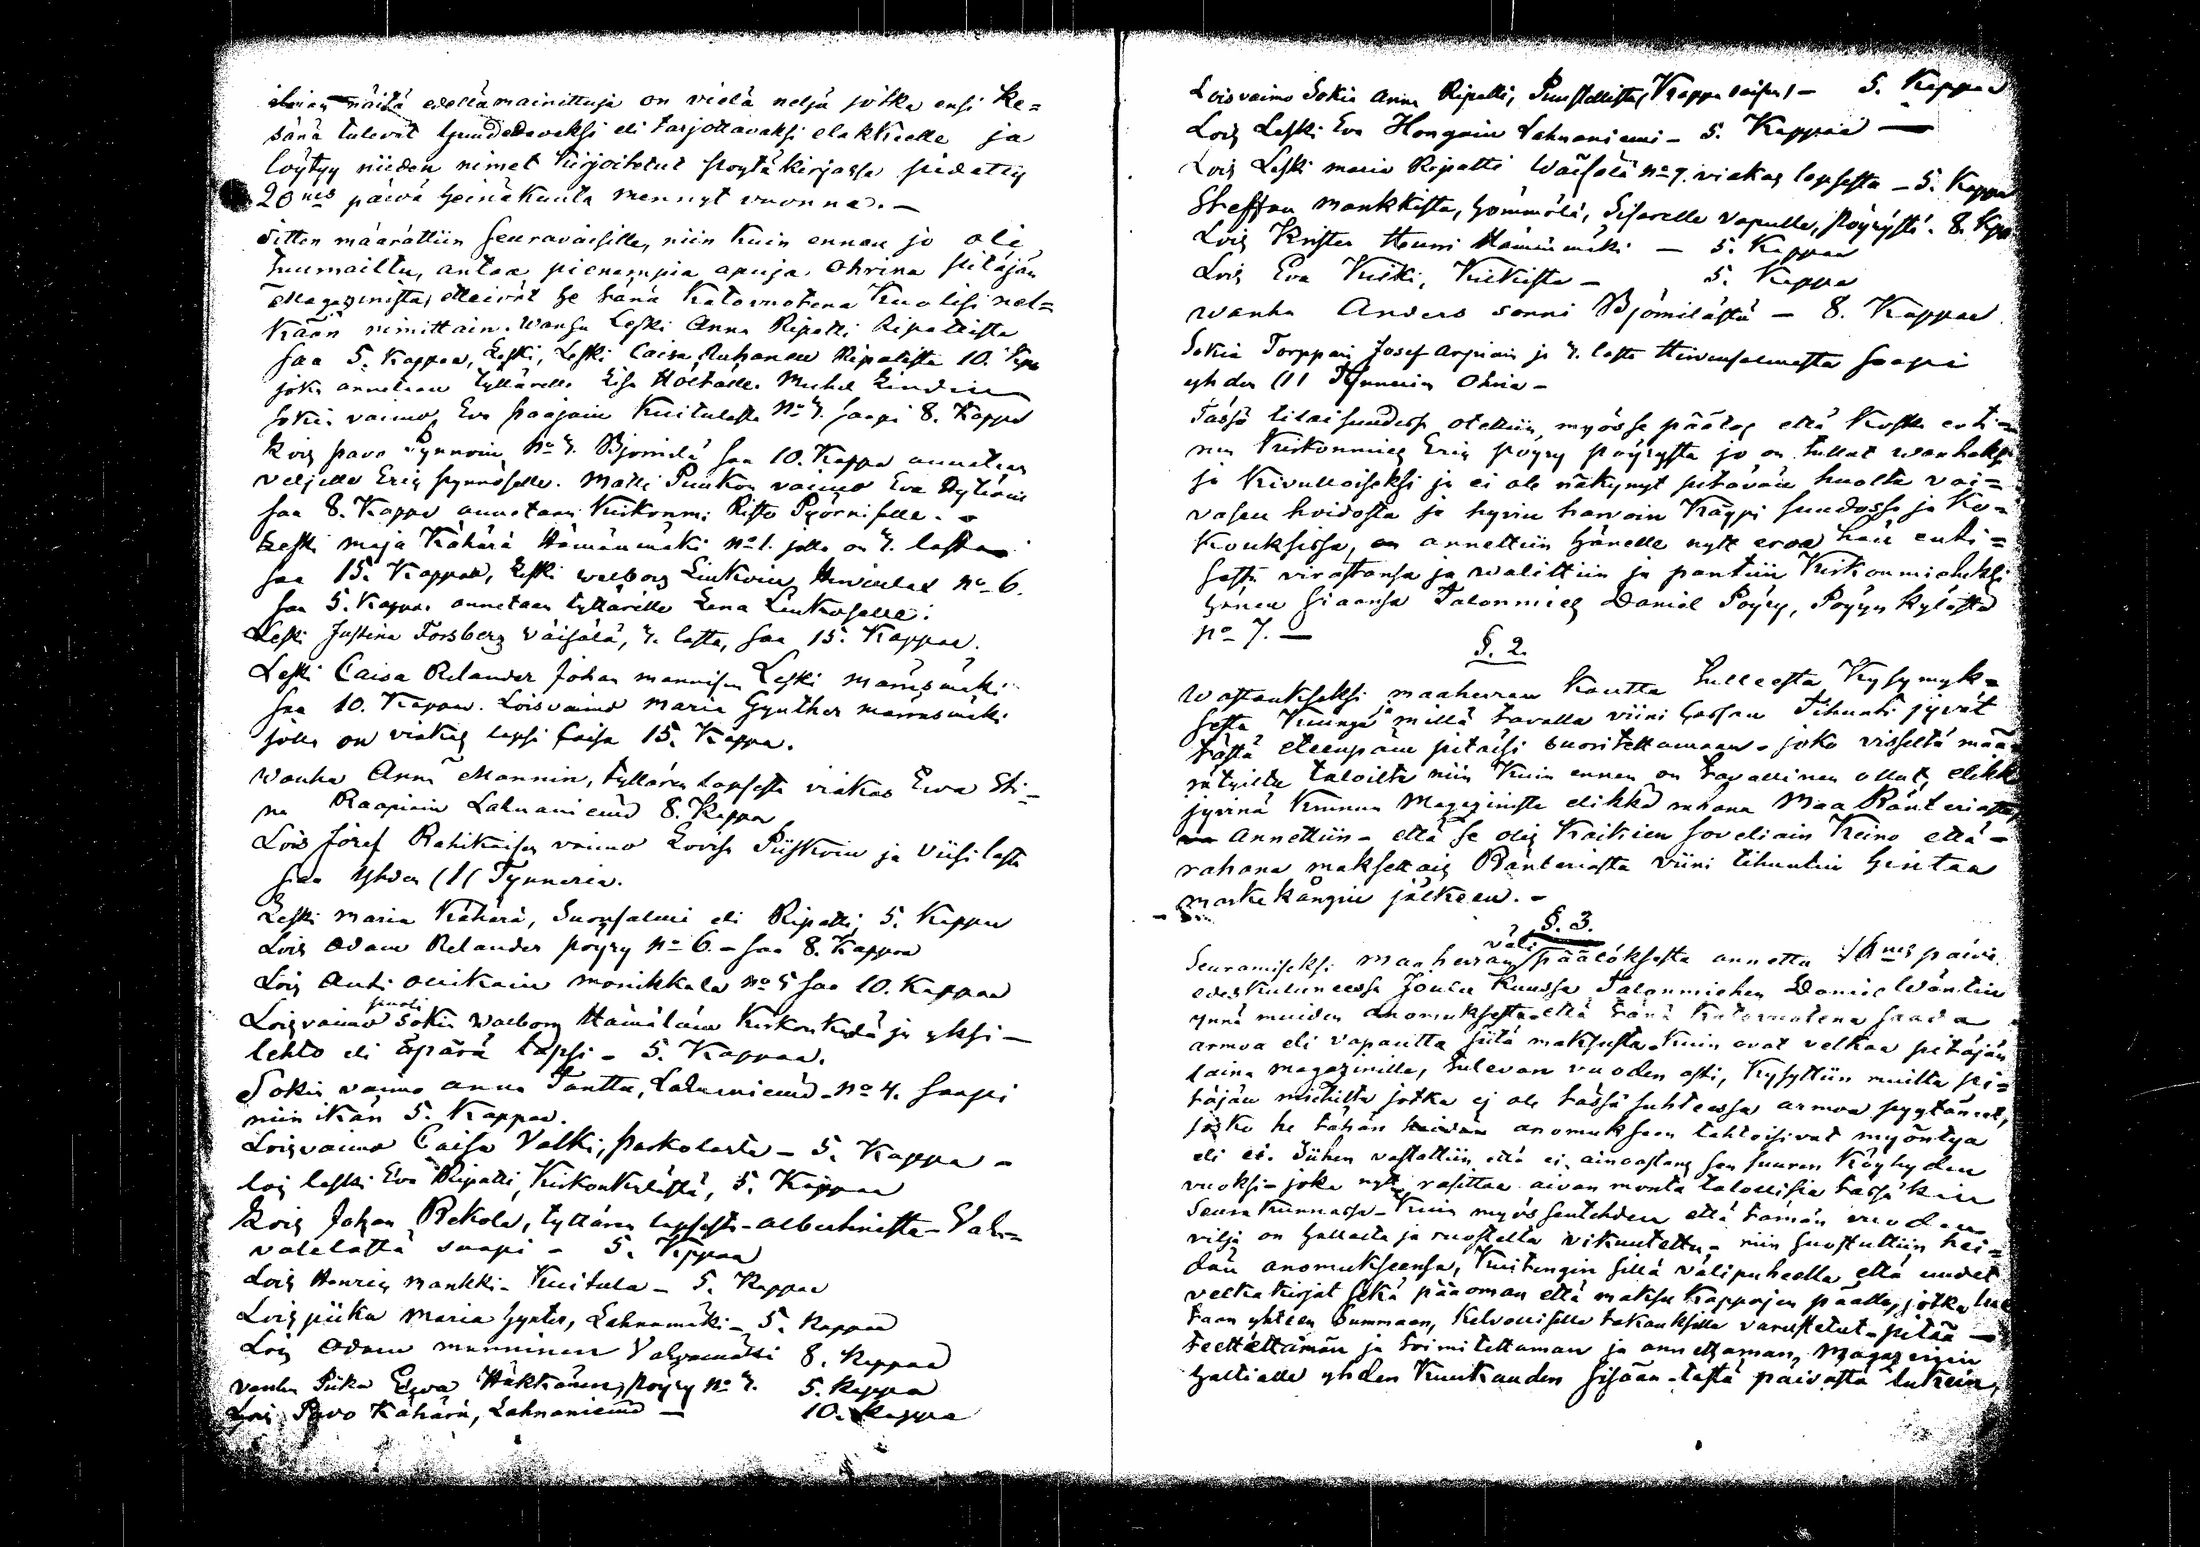 näitä edellämainittuja on vielä neljä jotka ensi ke=
sänä tulevat huudettavaksi eli tarjottavaksi elakkeelle ja
löytyy niiden nimet kirjoitetut pöytäkirjassa pidetty
20nes päivä heinäkuuta mennyt vuonna. -
Sitten määrättiin seuravaisille, niin kuin ennen jo oli
tuumailtu, antaa pienempiä apuja ohrina pitäjän
Magazinista, etteivät he tänä Katovuotena Kuolisi nel=
kään nimittäin. Wanha Leski Anna Ripatti Ripatista
saa 5. Kappaa, Leski Caisa Auhanen Ripatista 10. Kpa
joka annetaan tyttärelle Lisa Michel
Sokia vaimo Eva paajain Kuitulasta No 4. saapi 8. Kappa
Lois pavo Pynnöin No 4. Bjömilä saa 10. Kappa annetaan
veljelle Eric pynnöselle. Matti Puukon vaimo Eva
saa 8. Kappa annetaan Kirkonmi: Risto Pyörniselle. -
Leski Maja Kähärä Hämänmäki No 1. jolla on 4. lasta
saa 15. Kappaa, Leski Walborg Liukoin No 6.
saa 5. Kappa annetaan tyttärelle Lena Liukoselle:
Leski Justina Forsberg Väisälä, 4. lasta, saa 15. Kappaa.
Leski Caisa Relander Johan mannisen Leski
saa 10. Kappaa. Loisvaimo Maria Gynther
jolla on viakas lapsi Caisa 15. Kappa.
Wanha Anna Mannin, tyttären lapsesta viakas Ewa Sti=
na Raapiain Lahnaniemi 8. Kappa
Lois Josef Rahikaisen vaimo Lovisa Piiskoin ja viisi lasta
saa yhden (1( Tynnerin.
Leski Maria Kähärä, Suonsalmi eli Ripatti, 5. Kappaa
Lois Adam Relander pöyry No 6. - saa 8. Kappaa
Lois Anti Ollikain monikkala No 5 saa 10. Kappaa
Loisvaimo puoli Sokia Walborg Hämäläin Kirkonkylä ja yksi -
lehto eli äpärä lapsi - 5. Kappaa.
Sokia vaimo Anna Tanttu, Lahnaniemi - No 4. saapi
niin ikän 5. Kappaa.
Loisvaimo Caisa Valki, paskolasta - 5. Kappa -
lois leski Eva Ripatti, Kirkonkylästä, 5. Kappaa
Lois Johan Rekola, tyttären lapsesta - Albertinista - Vah=
valalasta saapi - 5. Kappaa
Lois Henric Mankki - Kuitula - 5. Kappaa
Lois piika Maria Gynter, Lahnamäki - 5. Kappaa
Lois Adam manninen 8. Kappaa
vanha Piika Eewa Häkkänen, pöyry No 4. 5. Kappa
Lois Pavo Kähärä, Lahnaniemi - 10. Kappa
Loisvaimo Sokia Anna Ripatti, - 5. Kappaa
Lois Leski Eva Hongoin Lahnaniemi - 5. Kappaa -
Lois Leski Maria Ripatti Wäisälä No 7. viakas lapsesta - 5. Kappa
Steffan Mankkista, Hömmölä, Sisarelle vapulle, pöyrystä - 8. Kpa
Lois Krister Henni Hämänmäki - 5. Kappaa
Lois Eva Kiiski, Kiiskistä - 5. Kappa
Wanha Anders sonni Bjömilästä - 8. Kappaa
Sokia Torppari Josef Arpiain ja 4. lasta Hirvensalmesta saapi
yhden (1( Tynnerin Ohria -
Tässä tilaisuudessa otettiin, myös se päätös että koska enti=
nen Kirkonmies Eric pöyry pöyrystä jo on tullut wanhaksi
ja Kivulloiseksi ja ei ole näkynyt pitävän huolta vai=
vasen hoidosta ja hyvin harvoin käypi huudossa ja Ko=
kouksissa, annettiin hänelle nytt eroa hän enti=
sestä virastansa ja walittiin ja pantiin Kirkonmieheksi
hänen siaansa Talonmies Daniel Pöyry, Pöyryn kylästä
No 7. -
§. 2.
Wastaukseksi maaherran kautta tulleesta Kysymyk=
sestä Kuinga millä tavalla viini hassan Tihunti jyvät
tästä eteenpäin pitäisi suoritettamaan - joko visseltä mää=
rätyiltä taloilta niin kuin ennen on tavallinen ollut, elikkä
jyvinä Kruunun Magazinista elikkä rahana Maa Ränteriasta,
Annettiin - että se olis kaikien soveliain Keino että -
rahana maksettais Ränteriasta viini tihuntin hintaa
markekångin jälkeen. -
§. 3.
Seuramiseksi Maaherran väli päätöksestä annettu 16nes päivä
edeskuluneessa Joulu kuussa Talonmiehen Daniel Wäntin
ynnä muiden anomuksesta että tänä Katovuotena saada
armoa eli vapautta siitä maksusta kuin ovat velkaa pitäjän
laina magazinille, tulevan vuoden asti, kysyttiin muilta pi=
täjän miehiltä jotka ej ole tässä suhteessa armoa pyytäneet,
josko he tähän anomukseen tahtoisivat myöntyä
eli ei. Siihen vastattiin että ei ainoastans sen suuren Köyhyden
vuoksi - joka nyt rasittaa aivan monta talollisia tässäkin
seurakunnassa - kuin myös sentähden että tämän vuoden
vilja on hallalta ja ruostelta vikuutettu, - niin suostuttiin hei=
dän anomukseensa, Kuitengin sillä välipuheella että uudet
velkakirjat sekä pääoman että maksu kappojen päälle, jotka lue
taan yhteen Summaan, Kelvolliselle takauksille varustetut - pitää -
teettättämän ja toimitettaman ja annettaman, Magazinin
haltialle yhden Kuukauden sisään - tästä päivästä lukein,